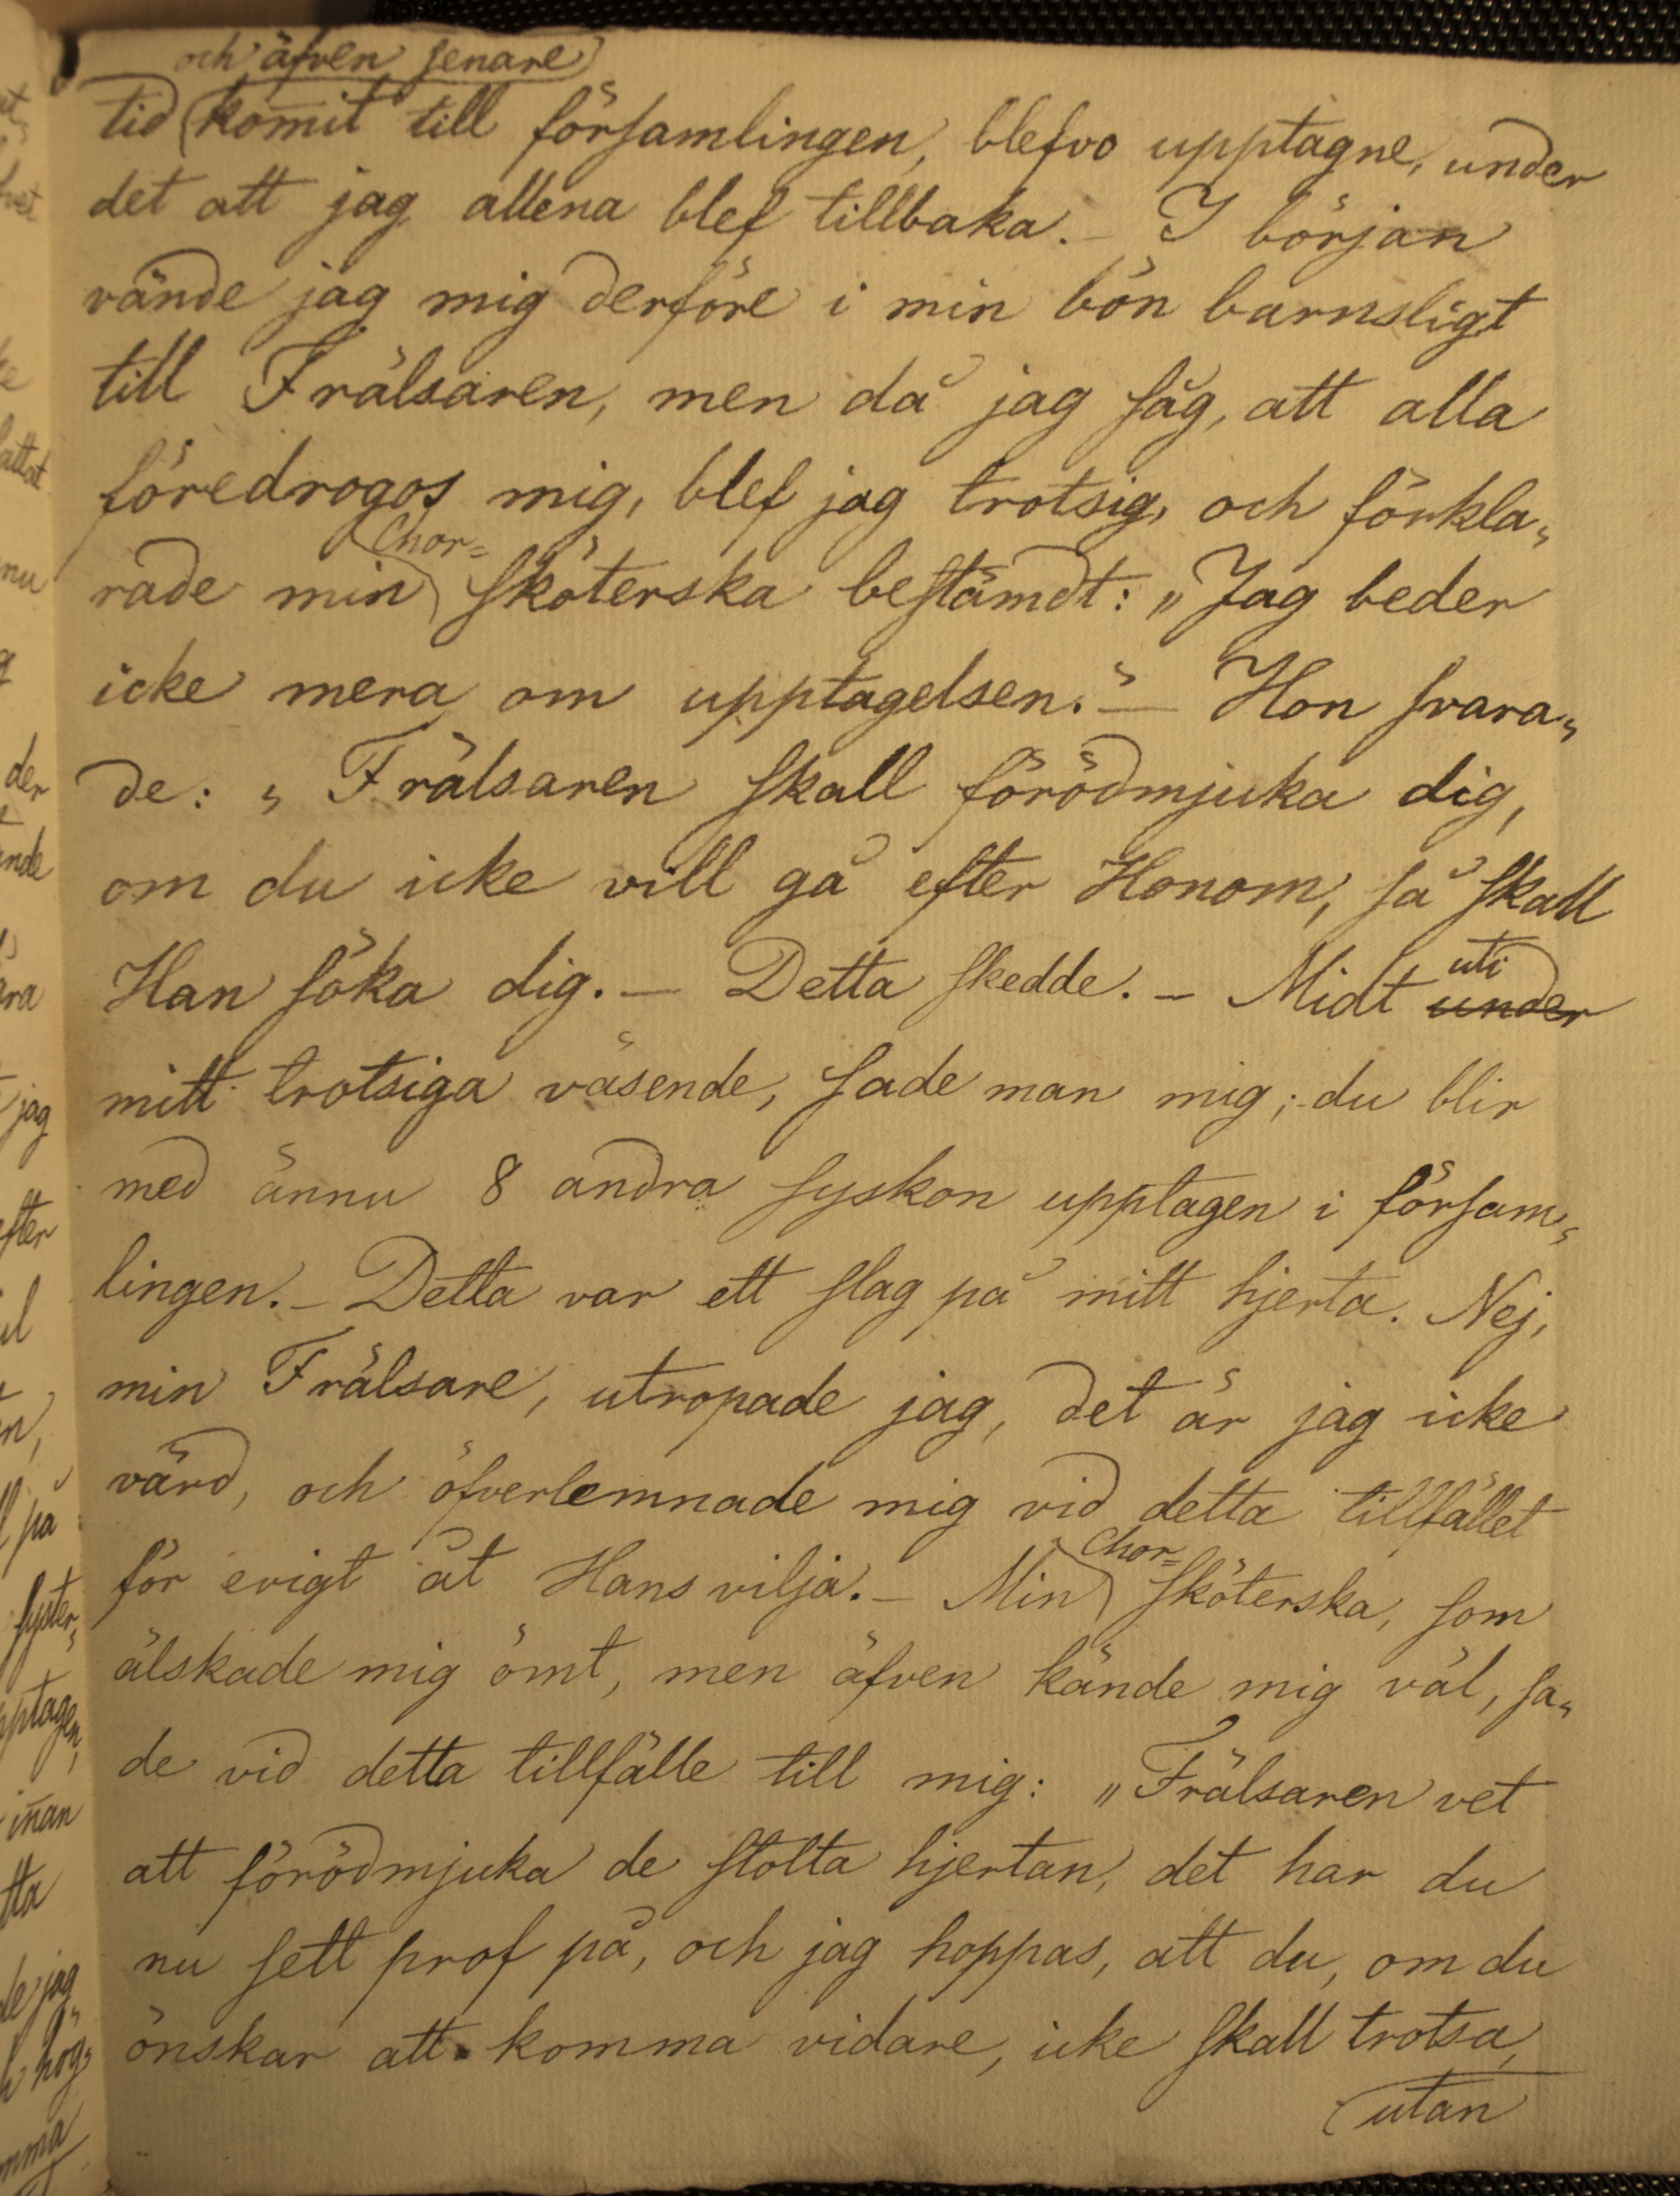 och äfven senare
tid komit till församlingen, blefvo upptagne, under
det att jag allena blef tillbaka. – I början
vände jag mig derföre i min bön barnsligt
till Frälsaren, men då jag såg, att alla
föredrogos mig, blef jag trotsig, och förkla„
Chor=
rade min sköterska bestämdt: „Jag beder
icke mera om upptagelsen.“ – Hon svara„
de: „Frälsaren skall förödmjuka dig,
om du icke vill gå efter Honom, så skall
uti
Han söka dig. – Detta skedde. – Midt under
mitt trotsiga väsende, sade man mig; du blir
med ännu 8 andra syskon upptagen i försam„
lingen. – Detta var ett slag på mitt hjerta. Nej,
min Frälsare, utropade jag, det är jag icke
värd, och öfverlemnade mig vid detta tillfället
Chor=
för evigt åt Hans vilja. – Min sköterska, som
älskade mig ömt, men äfven kände mig väl, sa„
de vid detta tillfälle till mig: „Frälsaren vet
att förödmjuka de stolta hjertan, det har du
nu sett prof på, och jag hoppas, att du, om du
önskar att komma vidare, icke skall trotsa,
utan